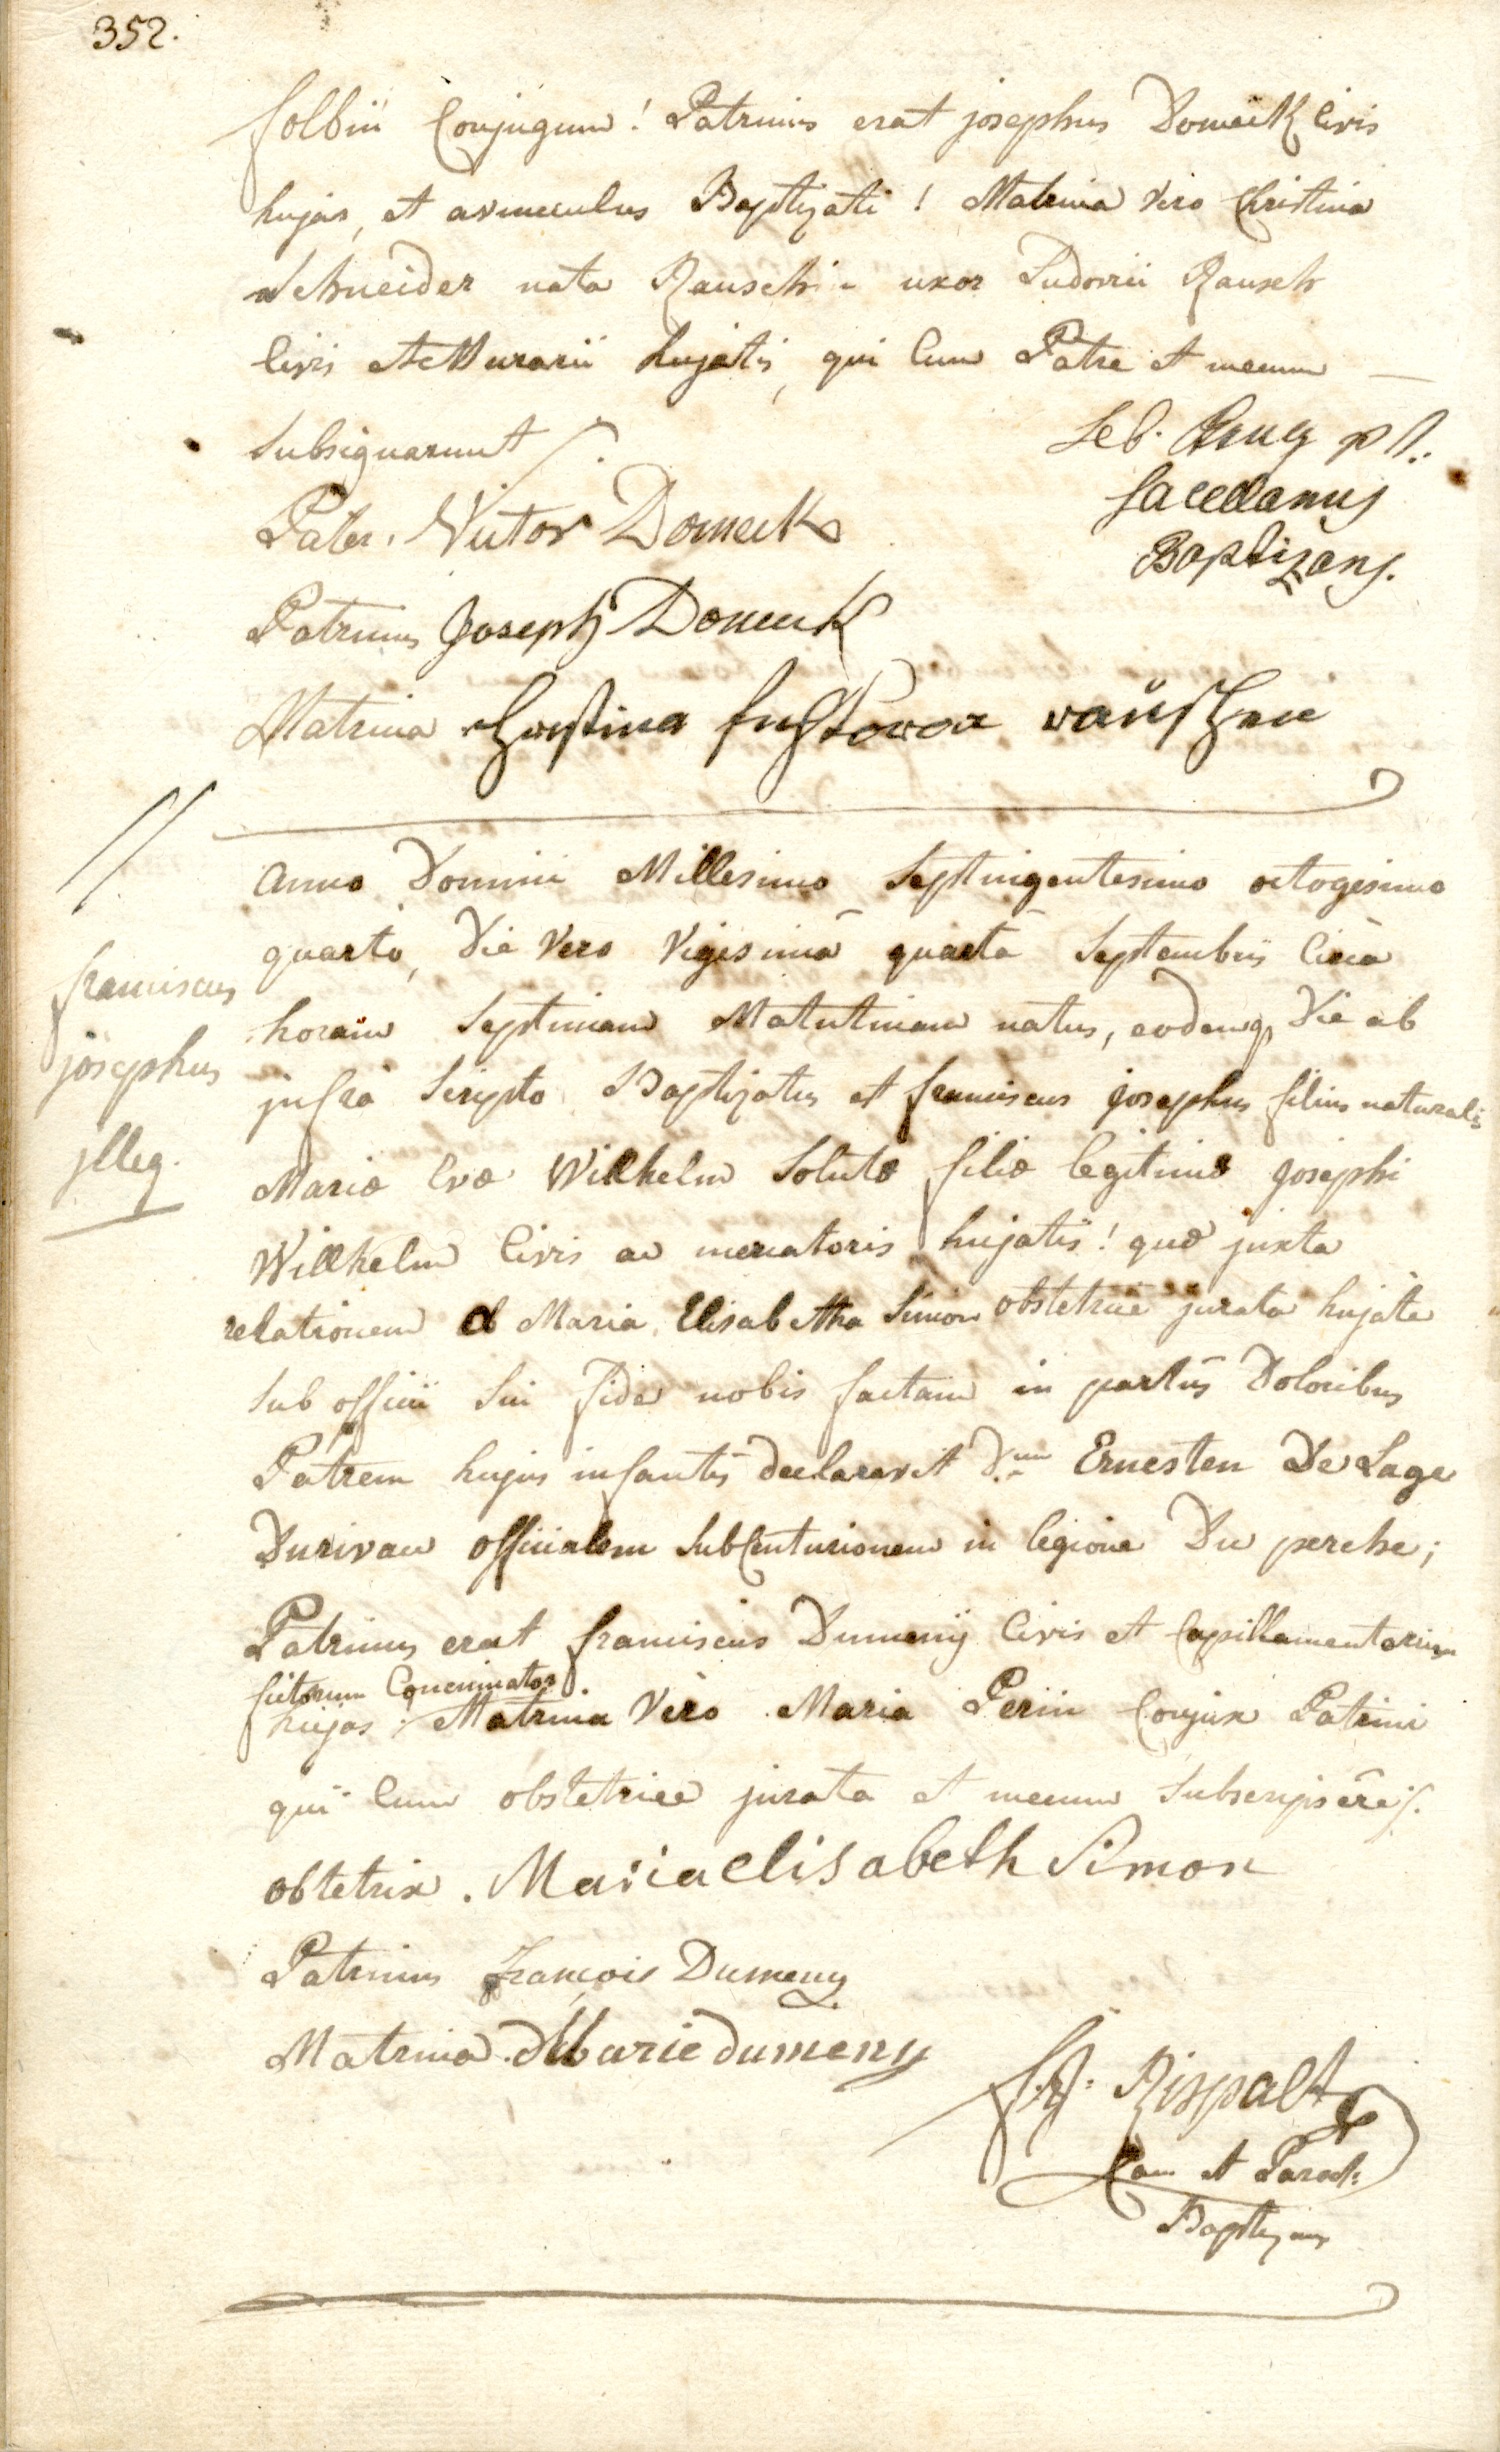 352.
folbin Conjugum! Patrinus erat josephus Domeck Civis
hujas, et avunculus Baptizati! Matrina vero Christina
Schneider nata Rausch - uxor Ludovici Rausch
Civis et Murarii hujatis, qui Cum Patre et mecum —
Subsignarunt /.
Seb. pt:
Sacellanus
Baptizans.
Pater. Victor Domeck
Patrinus Joseph Domeck
Matrina
Anno Domini Millesimo Septingentesimo octogesimo
quarto, Die Vero Vigesimâ quartâ Septembris Circa
horam Septimam Matutinam natus, eodemq. Die ab
infrà Scripto Baptizatus est franciscus josephus filius naturalis
Mariæ Evæ Willhelm Solutæ filiæ legitimæ josephi
Willhelm Civis ac mercatoris hujatis! quæ juxta
relationem a Maria Elisabetha Simon obstetrice jurata hujate
Sub officii Sui fide nobis factam in partûs Doloribus
Patrem hujus infantis declaravit D.num Ernesten De Lage
Durivau officialem SubCenturionem in legione Du perche;
Patrinus erat franciscus Dumenij Civis et Capillamentorum
fictorum Concinnator
hujas; Matrina Verò Maria Perin Conjux Patrini
qui Cum obstetrice jurata et mecum Subscripsêre /.
obtetrix. Maria elisabeth Simon
Patrinus François Dumeny
Matrina. Marie dumeny
franciscus
josephus
illeg.
Rispalt
Can et Paroch:
Baptizans